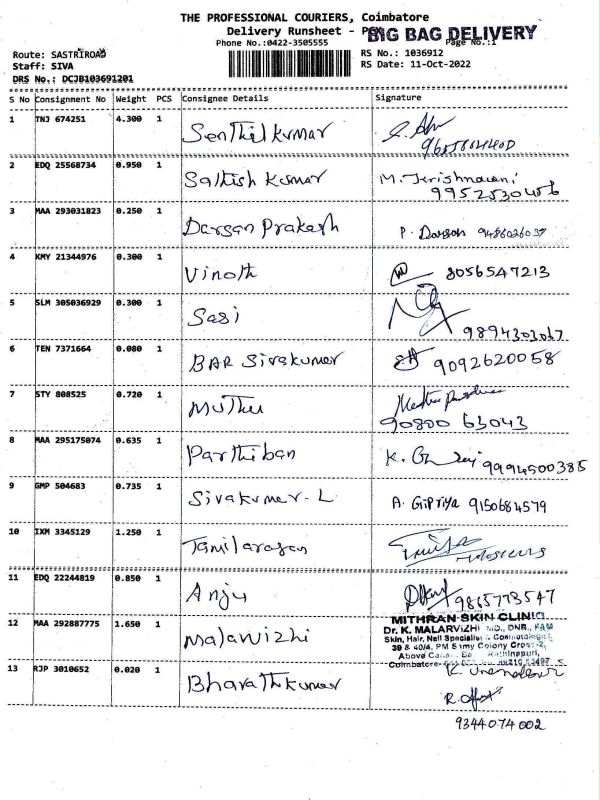 THE PROFESSIONAL COURIERS, Coimbatore
Delivery Runsheet - P BIG BAG DELIVERY
Phone No.:0422-3505555 Page No.:1
Route: SASTRIROAD RS No.: 1036912
Staff: SIVA RS Date: 11-Oct-2022
DRS No.: DCJB103691201
S No Consignment No Weight PCS Consignee Details Signature
1 TNJ 674251 4.300 1 Senthilkumar
2 EDQ 25568734 0.950 1 Sathish Kumar M. Krishnaveni
9952530456
3 MAA 293031823 0.250 1 Darsan Prakash P. Darsan 9486026037
4 KMY 21344976 0.300 1 Vinoth 8056547213
5 SLM 305036929 0.300 1 Sasi
9894303067
6 TEN 7371664 0.080 1 BAR Sivakumar 9092620058
7 STY 808525 0.720 1 Muthu
90800 63043
8 MAA 295175074 0.635 1 Parthiban K. 9994500385
9 GMP 504683 0.735 1 Sivakumar. L A. GiPriya 9150684579
10 IXM 3345129 1.250 1 Tamilarasan
11 EDQ 22244819 0.850 1 Anju 9865773547
12 MAA 292887775 1.650 1 Malarvizhi
MITHRAN SKIN CLINIC
Dr. K. MALARVIZHI MD., DNB., FAM
Skin, Hair, Nail Specialist & Cosmetologist,
39 & 40/4, PM Samy Colony Cross-2,
Above Rathinapuri,
Coimbatore
13 RJP 3010652 0.020 1 Bharathkumar
R.
9344074002